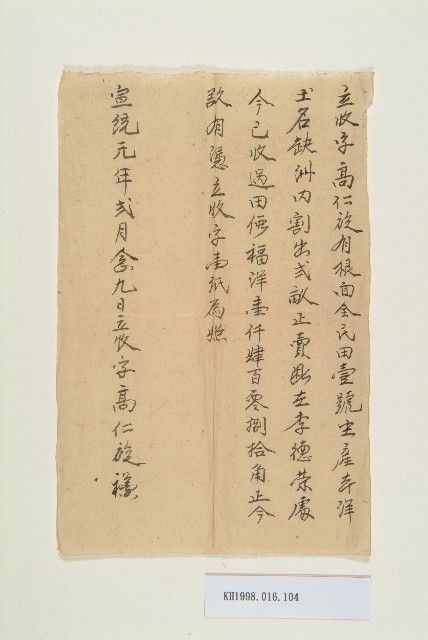 立收字高仁旋有根面全民田壹號坐產本洋
土名缺洲內割出弍畝正賣斷在李德榮處
今已收過田價福洋壹仟肆百零捌拾角正今
欲有憑立收字壹紙為照
宣統元年弍月念九日立收字高仁旋
KH1998.016.104